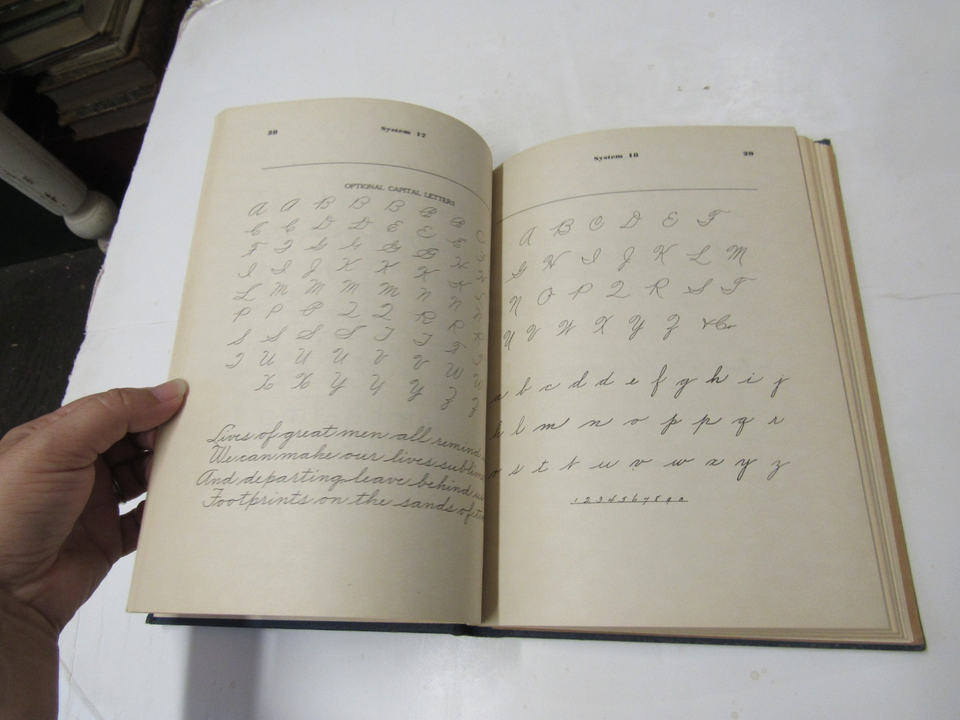 28 System 17
OPTIONAL CAPITAL LETTERS
A A B B B B B C
C C D D E E E
F F G G G H H
I I J K K K K
L M M M M N N N
P P P Q Q R R R
S S S S T T T
T U U U V V W U
X X Y Y Y Z Z
Lives of great men all remind
We can make our lives sublime
And departing leave behind
Footprints on the sands of
System 18 29
A B C D E F
G H I J K L M
N O P Q R S T
U V W X Y Z &Co
a b c d d e f g h i j
k l m n o p p q r
r s t t u v w x y z
1 2 3 4 5 6 7 8 9 0